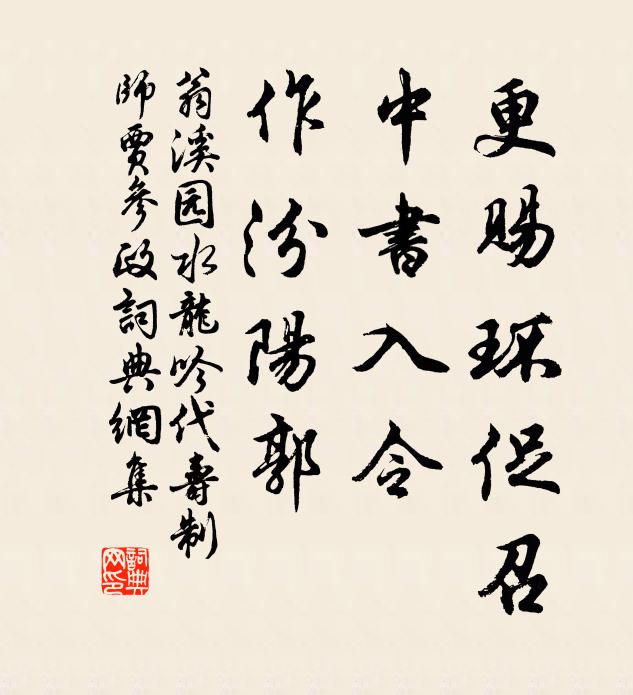 更賜环促召
中書入令
作汾陽郭
翁溪园水龍吟代壽制
師賈參政詞典網集
詞典
网印